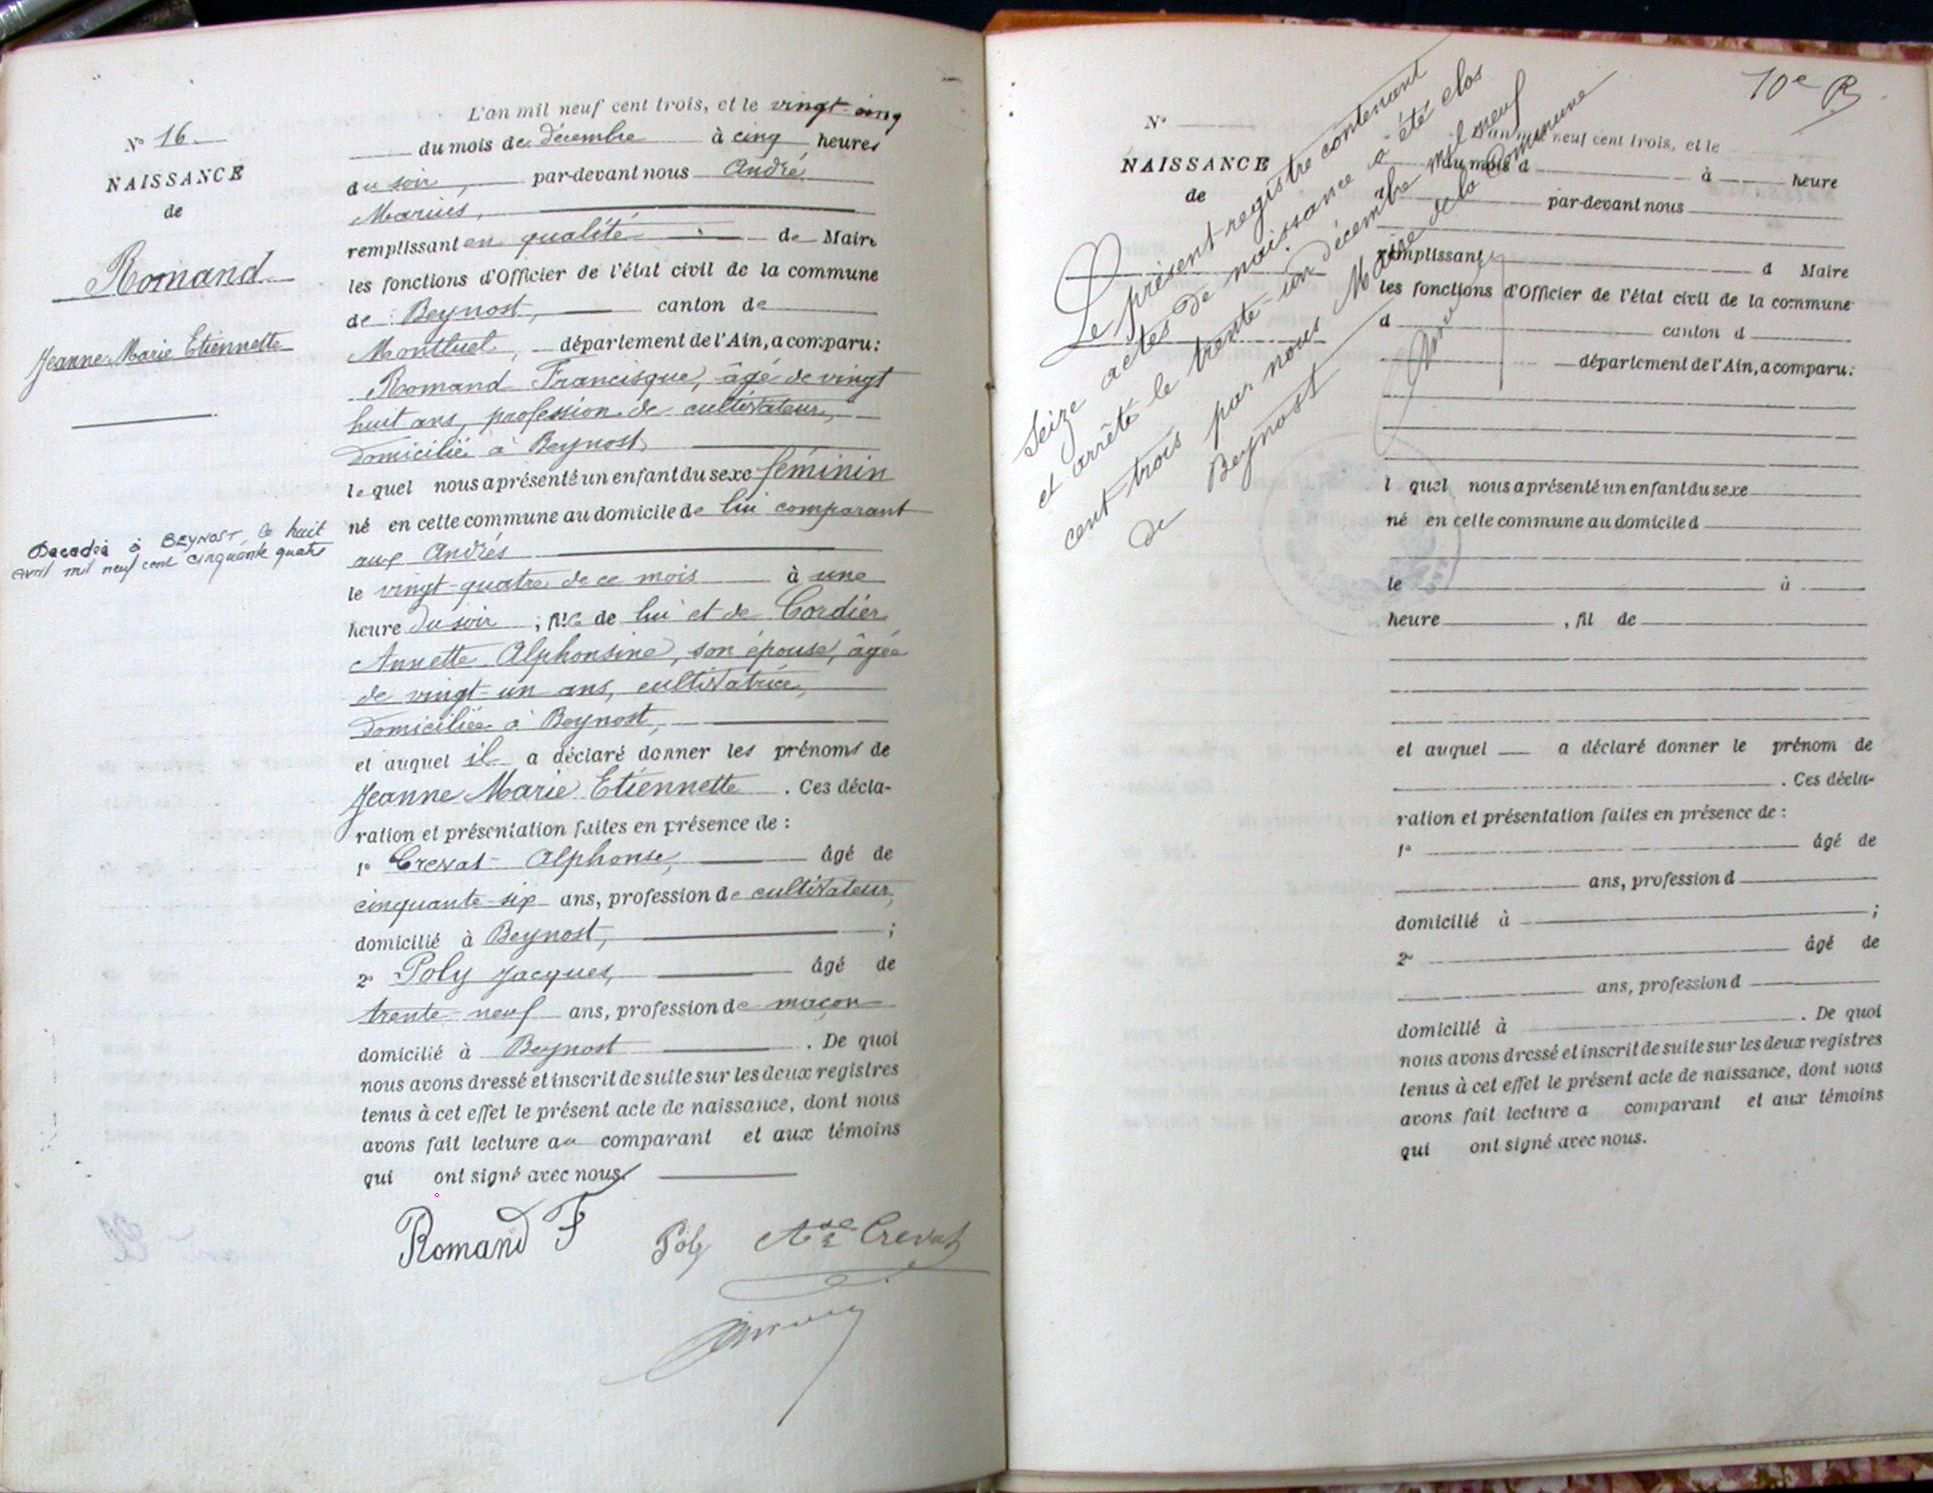 Nº 16
NAISSANCE
de
Romand
Jeanne Marie Etiennette
Décédée à BEYNOST, le huit
avril mil neuf cent cinquante quatre
L'an mil neuf cent trois, et le vingt-cinq
du mois de décembre à cinq heures
du soir, par-devant nous André
Marius,
remplissant en qualité de Maire
les fonctions d'Officier de l'état civil de la commune
de Beynost, canton de
Montluel, département de l'Ain, a comparu:
Romand Francisque, âgé de vingt
huit ans, profession de cultivateur,
domicilié à Beynost,
lequel nous a présenté un enfant du sexe féminin
né en cette commune au domicile de lui comparant
aux Andrés
le vingt-quatre de ce mois à une
heure du soir ; fille de lui et de Cordier
Annette Alphonsine, son épouse, âgée
de vingt-un ans, cultivatrice,
domiciliée à Beynost,
et auquel il a déclaré donner les prénoms de
Jeanne Marie Etiennette . Ces décla-
ration et présentation faites en présence de :
1º Crevat Alphonse, âgé de
cinquante-six ans, profession de cultivateur,
domicilié à Beynost, ;
2º Poly Jacques, âgé de
trente-neuf ans, profession de maçon
domicilié à Beynost . De quoi
nous avons dressé et inscrit de suite sur les deux registres
tenus à cet effet le présent acte de naissance, dont nous
avons fait lecture au comparant et aux témoins
qui ont signé avec nous.
Romand F Poly Ase Crevat
10e R
Le présent registre contenant
seize actes de naissance a été clos
et arrêté le trente-un décembre mil neuf
cent trois par nous Maire de la Commune
de Beynost
Nº
NAISSANCE
de
L'an mil neuf cent trois, et le
du mois d à heure
par-devant nous
remplissant d Maire
les fonctions d'Officier de l'état civil de la commune
d canton d
département de l'Ain, a comparu:
l quel nous a présenté un enfant du sexe
né en cette commune au domicile d
le à
heure , fil de
et auquel a déclaré donner le prénom de
. Ces décla-
ration et présentation faites en présence de :
1º âgé de
ans, profession d
domicilié à ;
2º âgé de
ans, profession d
domicilié à . De quoi
nous avons dressé et inscrit de suite sur les deux registres
tenus à cet effet le présent acte de naissance, dont nous
avons fait lecture a comparant et aux témoins
qui ont signé avec nous.